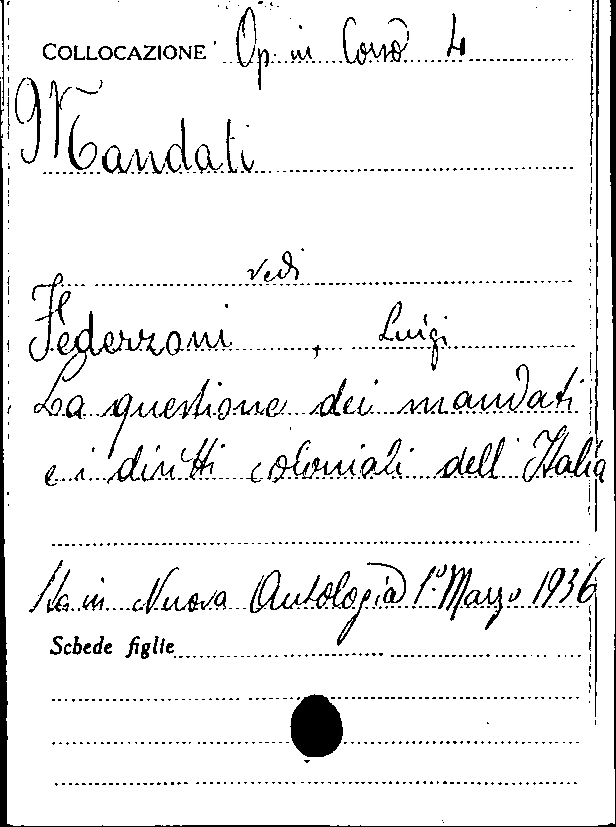 COLLOCAZIONE Op. in Corso 4
Mandati
vedi
Federzoni, Luigi
La questione dei mandati
e i diritti coloniali dell'Italia
Sta in Nuova Antologia 1° Marzo 1936
Schede figlie